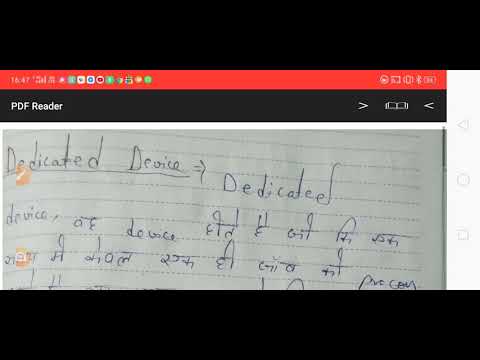 16:47
PDF Reader > <
Dedicated Device ⇒
Dedicated
device, वह device होते है जो कि एक
समय मे केवल एक ही जॉब को
process